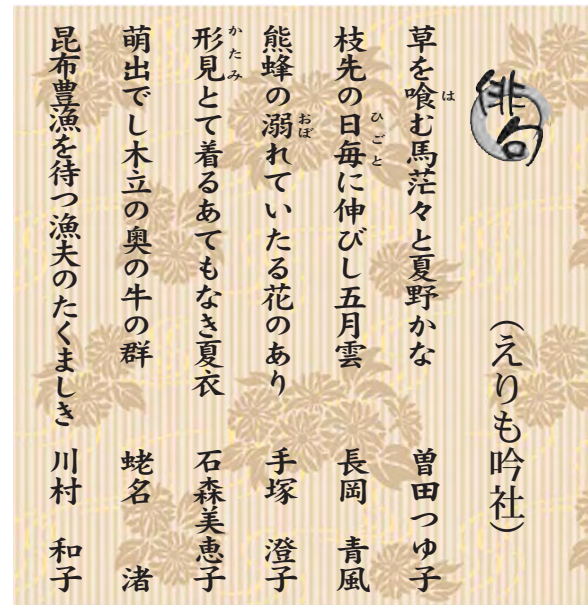 俳句
（えりも吟社）
草を喰む馬茫々と夏野かな　曽田つゆ子
枝先の日毎に伸びし五月雲　長岡　青風
熊蜂の溺れていたる花のあり　手塚　澄子
形見とて着るあてもなき夏衣　石森美恵子
萌出でし木立の奥の牛の群　蛯名　渚
昆布豊漁を待つ漁夫のたくましき　川村　和子